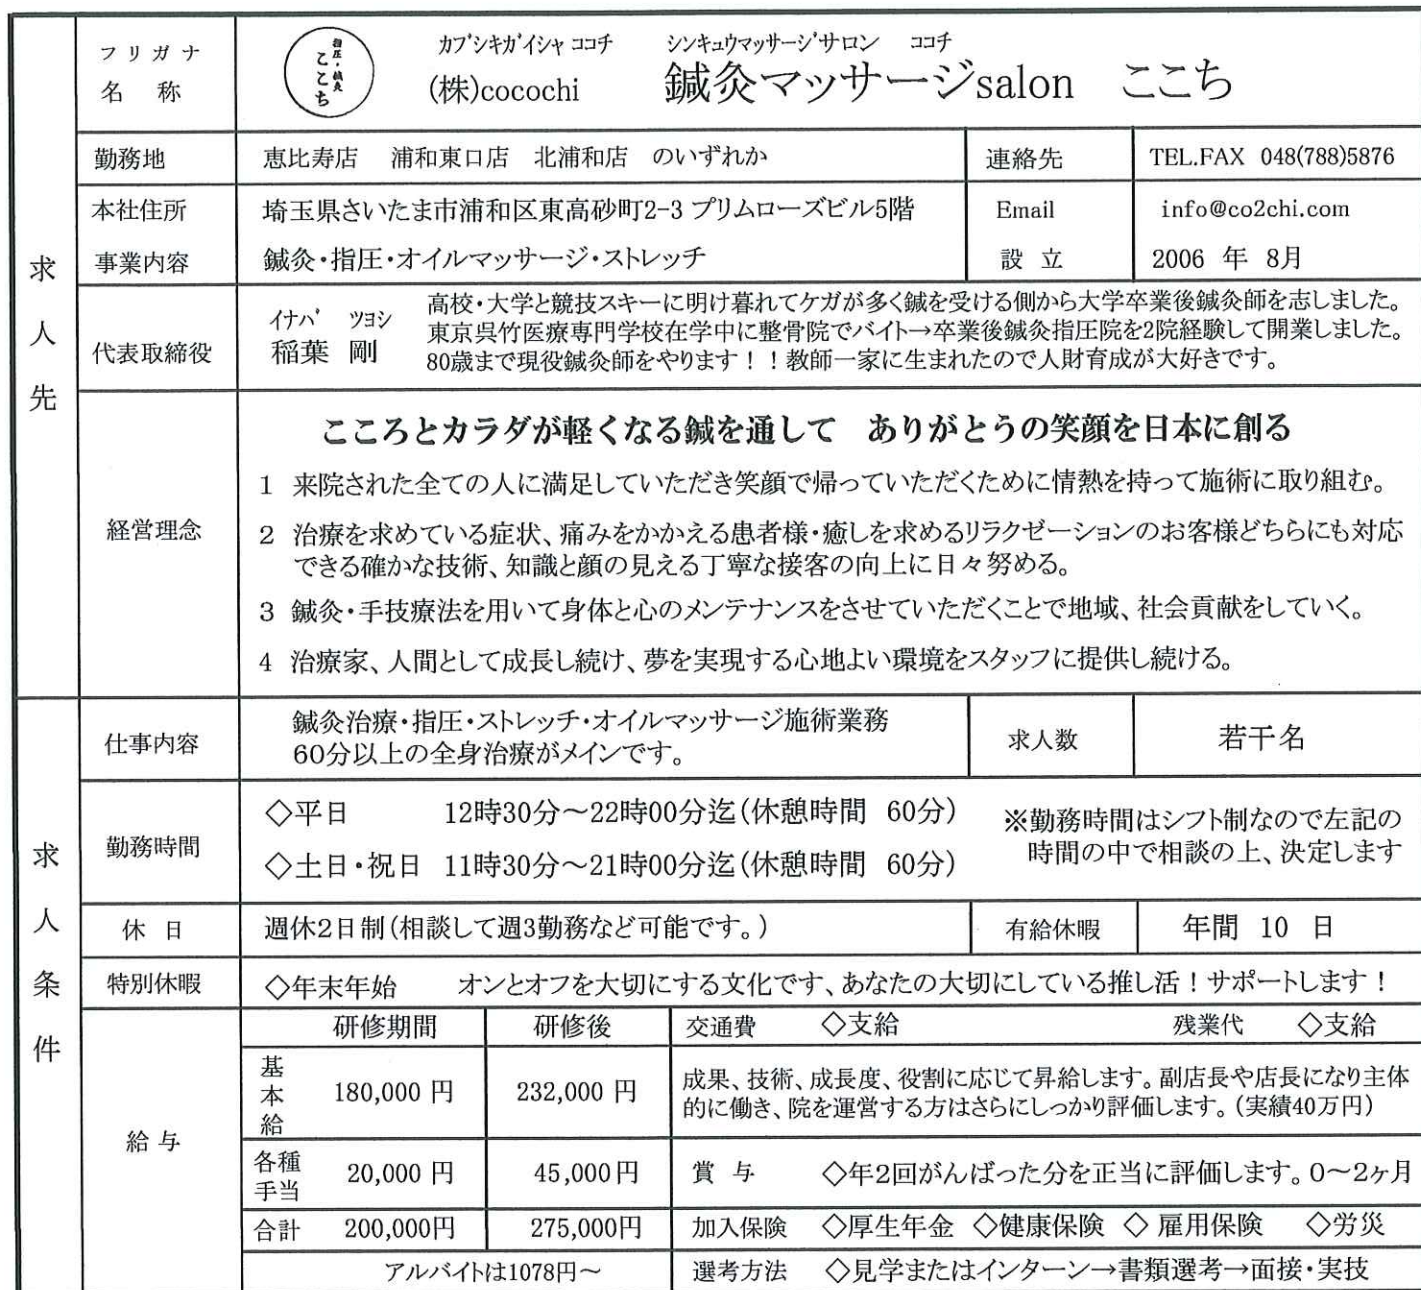 求人先
フリガナ
名 称
指圧・鍼灸
ここち
カブシキガイシャ ココチ シンキュウマッサージサロン ココチ
(株)cocochi 鍼灸マッサージsalon ここち
勤務地 恵比寿店 浦和東口店 北浦和店 のいずれか 連絡先 TEL.FAX 048(788)5876
本社住所 埼玉県さいたま市浦和区東高砂町2-3 プリムローズビル5階 Email info@co2chi.com
事業内容 鍼灸・指圧・オイルマッサージ・ストレッチ 設 立 2006 年 8月
代表取締役
イナバ ツヨシ
稲葉 剛
高校・大学と競技スキーに明け暮れてケガが多く鍼を受ける側から大学卒業後鍼灸師を志しました。
東京呉竹医療専門学校在学中に整骨院でバイト→卒業後鍼灸指圧院を2院経験して開業しました。
80歳まで現役鍼灸師をやります！！教師一家に生まれたので人財育成が大好きです。
経営理念
こころとカラダが軽くなる鍼を通して ありがとうの笑顔を日本に創る
1 来院された全ての人に満足していただき笑顔で帰っていただくために情熱を持って施術に取り組む。
2 治療を求めている症状、痛みをかかえる患者様・癒しを求めるリラクゼーションのお客様どちらにも対応
できる確かな技術、知識と顔の見える丁寧な接客の向上に日々努める。
3 鍼灸・手技療法を用いて身体と心のメンテナンスをさせていただくことで地域、社会貢献をしていく。
4 治療家、人間として成長し続け、夢を実現する心地よい環境をスタッフに提供し続ける。
求人条件
仕事内容
鍼灸治療・指圧・ストレッチ・オイルマッサージ施術業務
60分以上の全身治療がメインです。
求人数 若干名
勤務時間
◇平日 12時30分～22時00分迄(休憩時間 60分)
◇土日・祝日 11時30分～21時00分迄(休憩時間 60分)
※勤務時間はシフト制なので左記の
時間の中で相談の上、決定します
休 日 週休2日制(相談して週3勤務など可能です。) 有給休暇 年間 10 日
特別休暇 ◇年末年始 オンとオフを大切にする文化です、あなたの大切にしている推し活！サポートします！
給 与
研修期間 研修後 交通費 ◇支給 残業代 ◇支給
基本給 180,000 円 232,000 円
成果、技術、成長度、役割に応じて昇給します。副店長や店長になり主体
的に働き、院を運営する方はさらにしっかり評価します。(実績40万円)
各種手当 20,000 円 45,000円 賞 与 ◇年2回がんばった分を正当に評価します。0～2ヶ月
合計 200,000円 275,000円 加入保険 ◇厚生年金 ◇健康保険 ◇ 雇用保険 ◇労災
アルバイトは1078円～ 選考方法 ◇見学またはインターン→書類選考→面接・実技